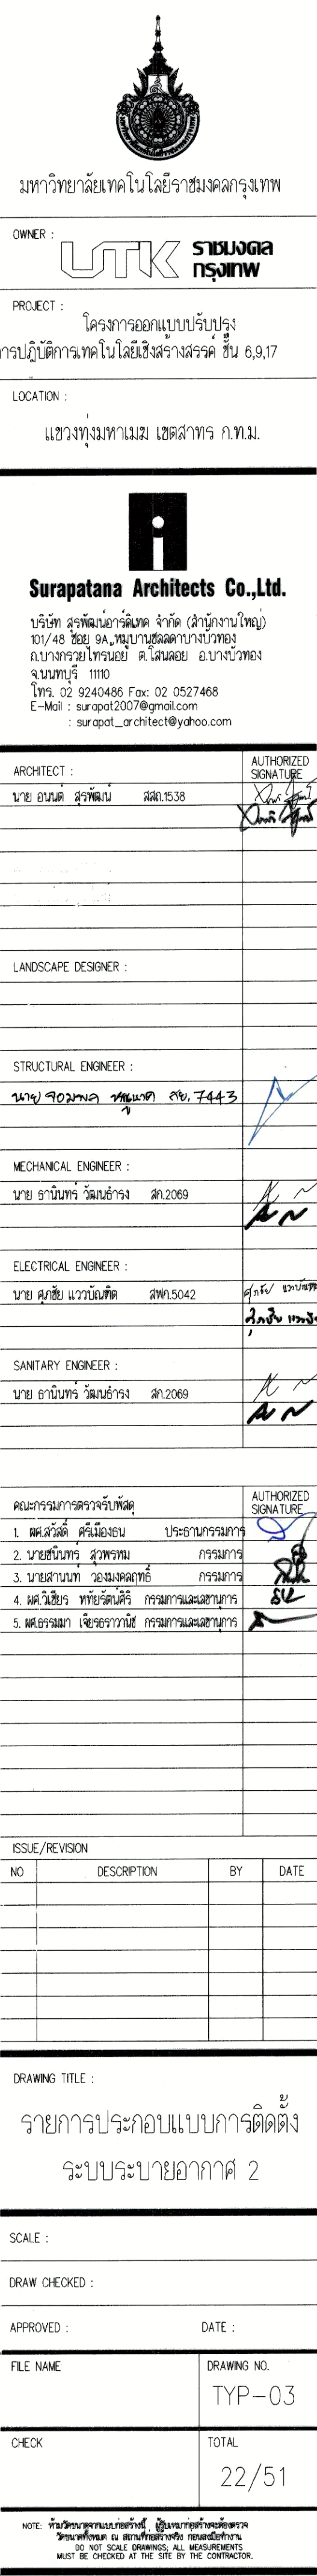 มหาวิทยาลัยเทคโนโลยีราชมงคลกรุงเทพ
OWNER :
UTK ราชมงคล
กรุงเทพ
PROJECT :
โครงการออกแบบปรับปรุง
ารปฏิบัติการเทคโนโลยีเชิงสร้างสรรค์ ชั้น 6,9,17
LOCATION :
แขวงทุ่งมหาเมฆ เขตสาทร ก.ท.ม.
Surapatana Architects Co.,Ltd.
บริษัท สุรพัฒน์อาร์คิเทค จำกัด (สำนักงานใหญ่)
101/48 ซอย 9A หมู่บ้านชลลดาบางบัวทอง
ถ.บางกรวยไทรน้อย ต.โสนลอย อ.บางบัวทอง
จ.นนทบุรี 11110
โทร. 02 9240486 Fax: 02 0527468
E-Mail : surapat2007@gmail.com
: surapat_architect@yahoo.com
ARCHITECT :
AUTHORIZED
SIGNATURE
นาย อนนต์ สุรพัฒน์ สสถ.1538
LANDSCAPE DESIGNER :
STRUCTURAL ENGINEER :
นาย จอมพล สย. 7443
MECHANICAL ENGINEER :
นาย ธานินทร์ วัฒนธำรง สก.2069
ELECTRICAL ENGINEER :
นาย ศุภชัย แววบัณฑิต สฟก.5042
SANITARY ENGINEER :
นาย ธานินทร์ วัฒนธำรง สก.2069
คณะกรรมการตรวจรับพัสดุ
AUTHORIZED
SIGNATURE
1. ผศ.สวัสดิ์ ศรีเมืองธน ประธานกรรมการ
2. นายชนินทร์ สุวพรหม กรรมการ
3. นายสานนท์ วองมงคลฤทธิ์ กรรมการ
4. ผศ.วิเชียร หทัยรัตน์ศิริ กรรมการและเลขานุการ
5. ผศ.ธรรมมา เจียรธราวานิช กรรมการและเลขานุการ
ISSUE/REVISION
NO DESCRIPTION BY DATE
DRAWING TITLE :
รายการประกอบแบบการติดตั้ง
ระบบระบายอากาศ 2
SCALE :
DRAW CHECKED :
APPROVED : DATE :
FILE NAME DRAWING NO.
TYP-03
CHECK TOTAL
22/51
NOTE: ห้ามวัดขนาดจากแบบก่อสร้างนี้ ผู้รับเหมาก่อสร้างจะต้องตรวจ
วัดขนาดทั้งหมด ณ สถานที่ก่อสร้างจริง ก่อนลงมือทำงาน
DO NOT SCALE DRAWINGS; ALL MEASUREMENTS
MUST BE CHECKED AT THE SITE BY THE CONTRACTOR.